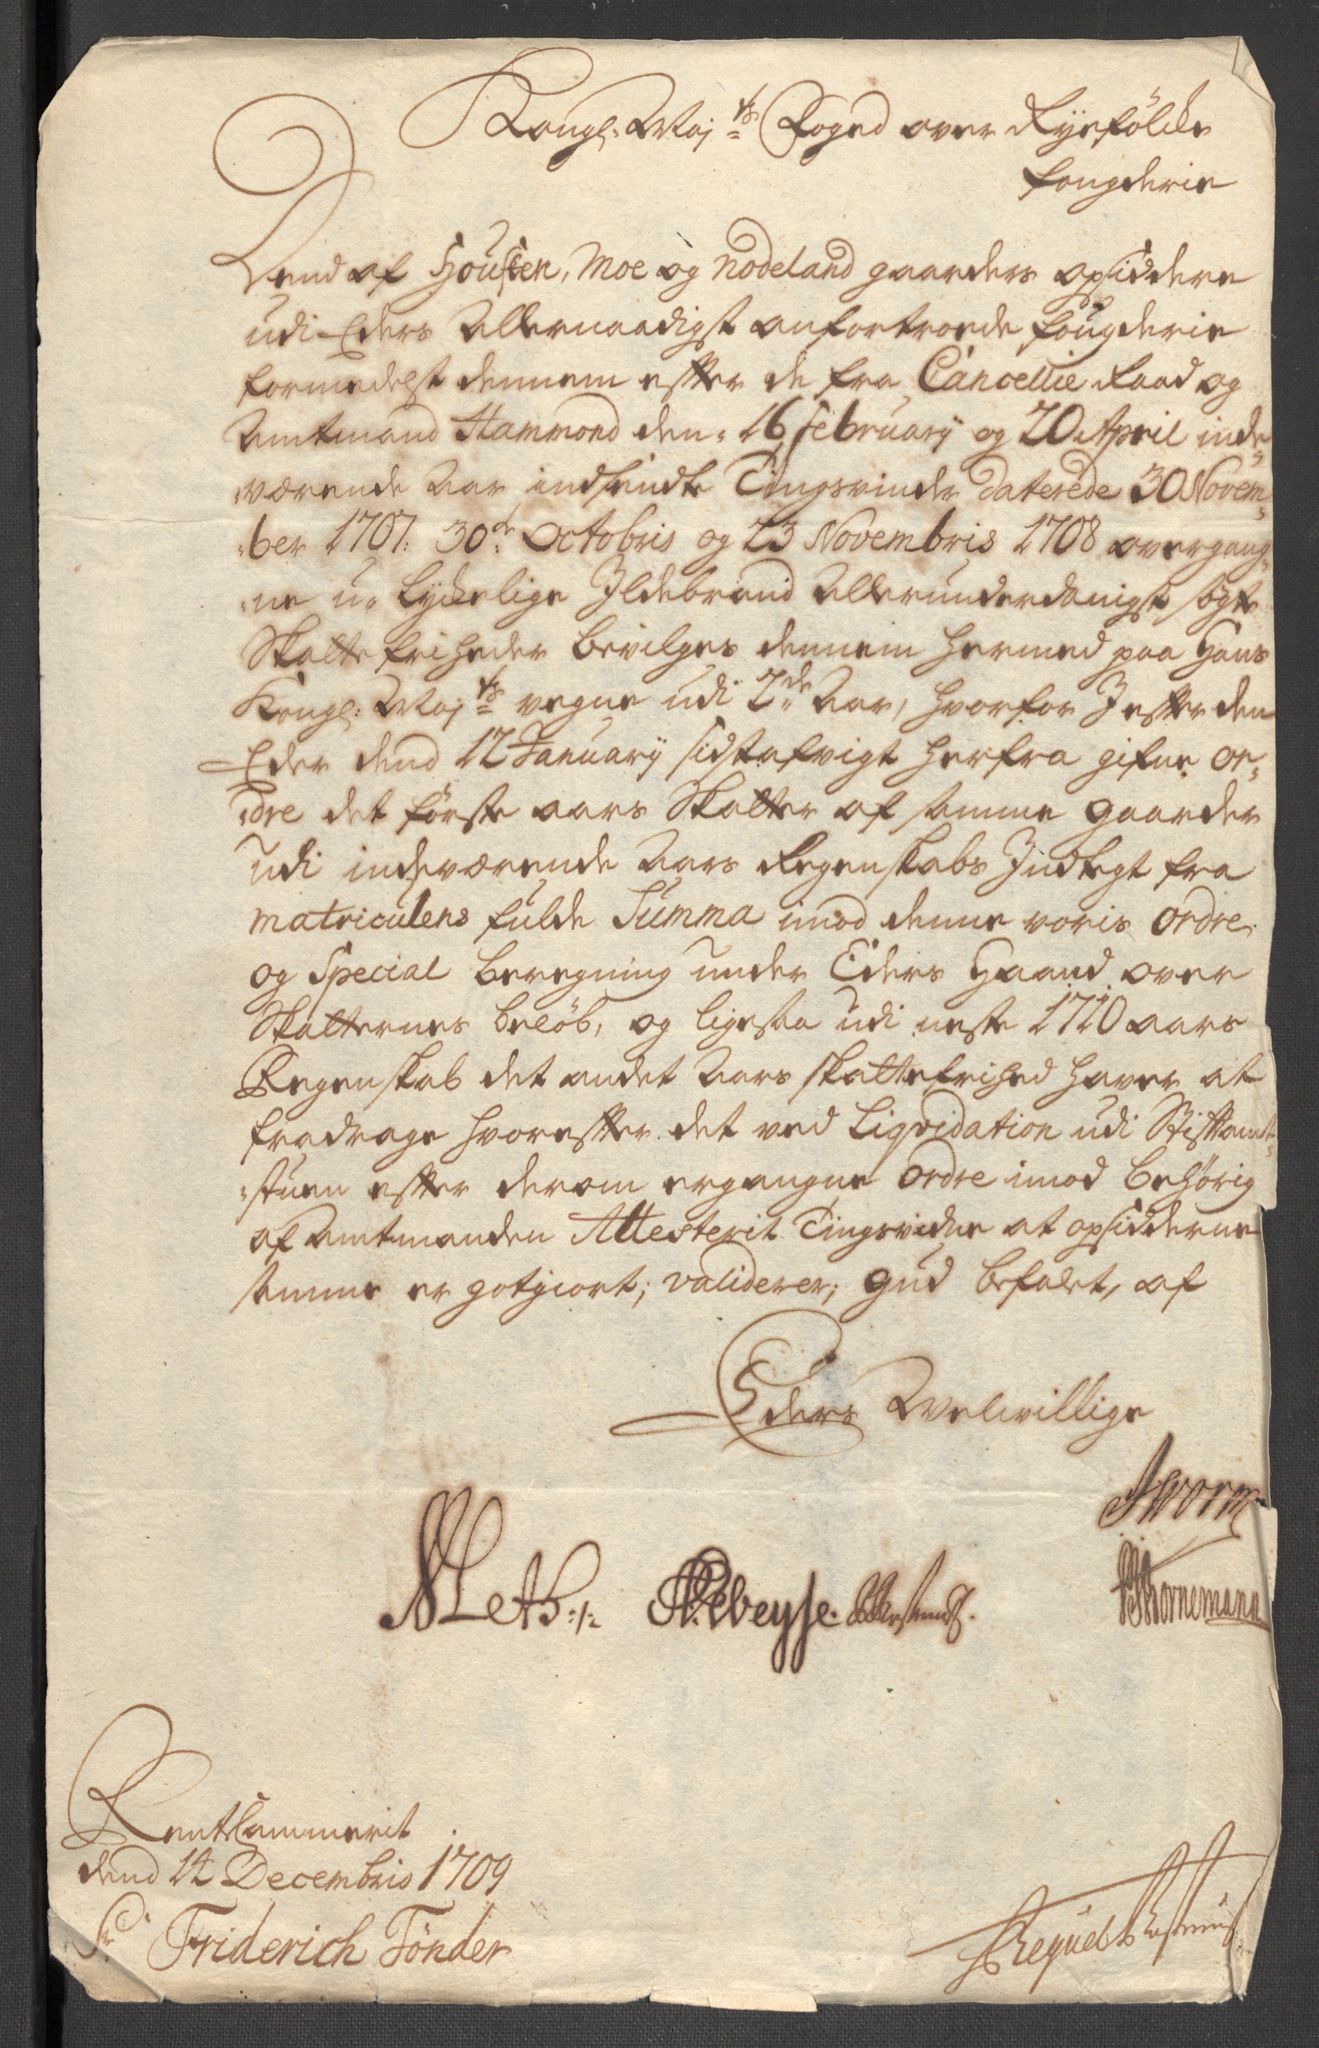 Kongl: Maj:ts Foged over Ryefölcke
fougderie
Dend af Housken, Moe og Nodeland gaarders opsiddere
udi Eders Allernaadigst anfortroede fougderie
formedelst dennem efter de fra Cancellie Raad og
Amtmand Hammond den 16 February og 20 April inde
værende Aar indsendte Tingsvinder daterede 30 Novem-
ber 1707. 30te Octobris og 23 Novembris 1708 overgang-
ne u-lyckelige Ildebrand Allerunderdanigst søgte
Skatte friheder bevilges dennem hermed paa Hans
Kongl: Maj:ts vegne udi 2de Aar, hvorfor I efter den
Eder dend 12 January sidstafvigt herfra gifne or-
dre det første aars Skatter af samme gaarder
udi indeværende Aars Regenskabs Indtegt fra
matriculens fulde Summa imod denne voris ordre
og Special beregning under Eders Haand over
Skatternes beløb, og ligesaa udi neste 1710 aars
Regenskab det andet Aars skattefrihed haver at
fradrage hvorefter det ved Liqvidation udi Stiftamt-
stuen efter derom ergangne ordre imod behörig
af Amtmanden Attesterit Tingsvidne at opsidderne
samme er gotgiort, validerer, Gud befalet, af
Eders Welvillige
A Worm
Meth:
Rebeyse
Hornemann
Rentekammerit
dend 14 Decembris 1709
Sr Friderich Tönder